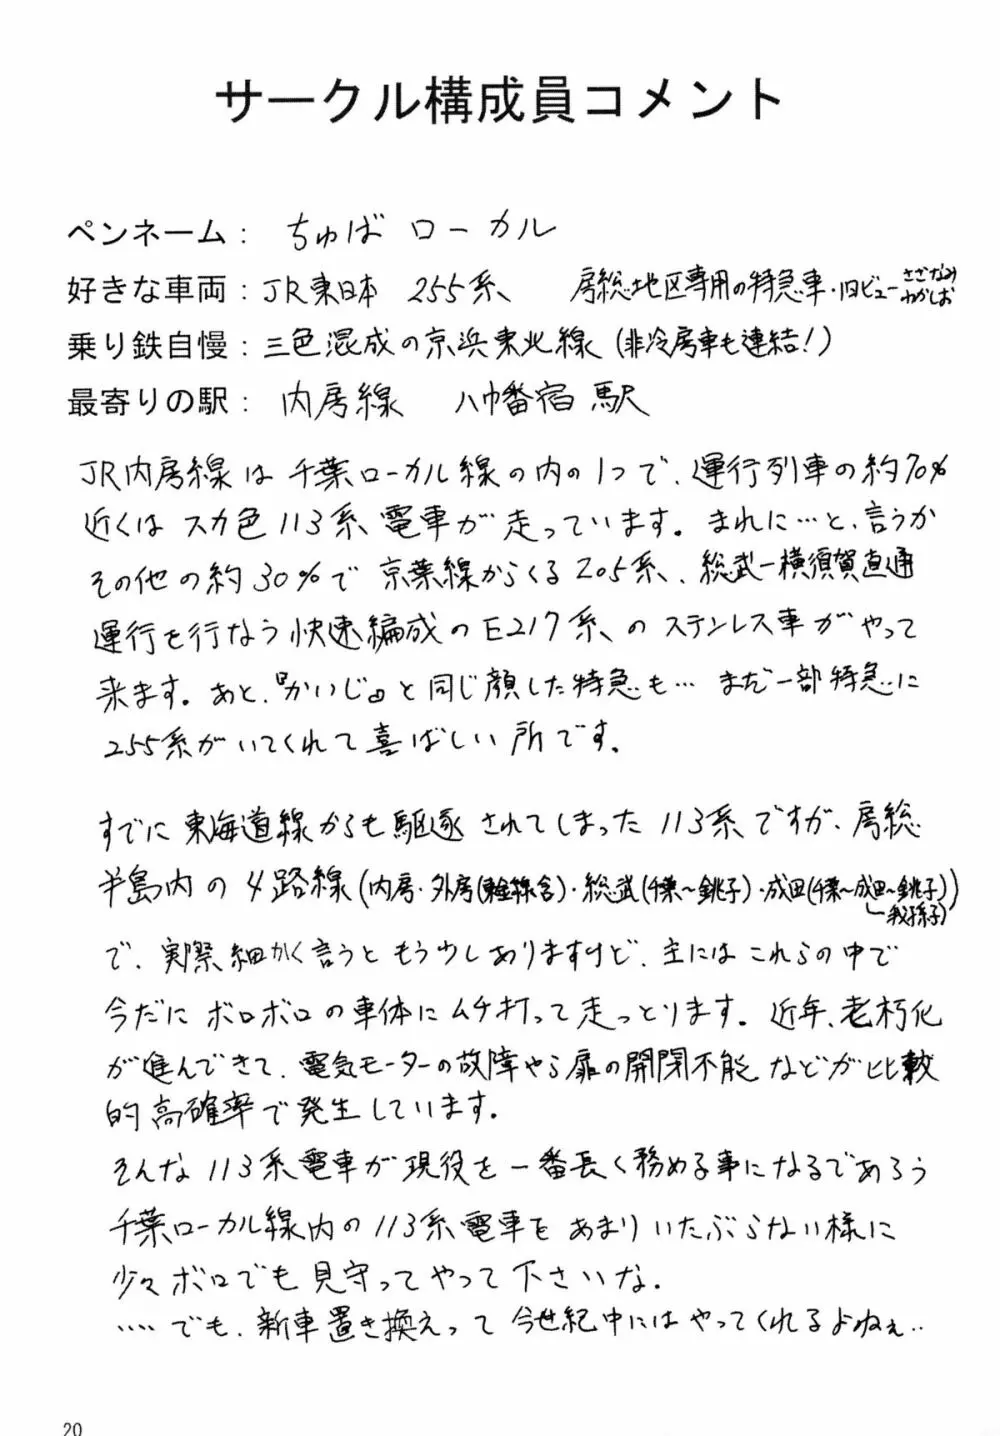 サークル構成員コメント
ペンネーム： ちゅばローカル
好きな車両：JR東日本 255系、 房総地区専用の特急車・旧ビューさざなみわかしお
乗り鉄自慢：三色混成の京浜東北線（非冷房車も連結！）
最寄りの駅： 内房線 八幡宿駅
JR内房線は千葉ローカル線の内の1つで、運行列車の約70%
近くはスカ色113系、電車が走っています。まれに…と、言うか
その他の約30%で京葉線からくる205系、総武－横須賀直通
運行を行なう快速編成のE217系、のステンレス車がやって
来ます。あと、『かいじ』と同じ顔した特急も… まだ一部特急に
255系がいてくれて喜ばしい所です。
すでに東海道線からも駆逐されてしまった113系ですが、房総
半島内の4路線（内房・外房（東金線含）・総武（千葉～銚子）・成田（千葉～成田～銚子））
我孫子）
で、実際細かく言うともう少しありますけど、主にはこれらの中で
今だにボロボロの車体にムチ打って走っとります。近年、老朽化
が進んできて、電気モーターの故障やら扉の開閉不能などが比較
的高確率で発生しています。
そんな113系電車が現役を一番長く務める事になるであろう
千葉ローカル線内の113系電車をあまりいたぶらない様に
少々ボロでも見守ってやって下さいな。
‥‥でも、新車置き換えって今世紀中にはやってくれるよねぇ‥
20